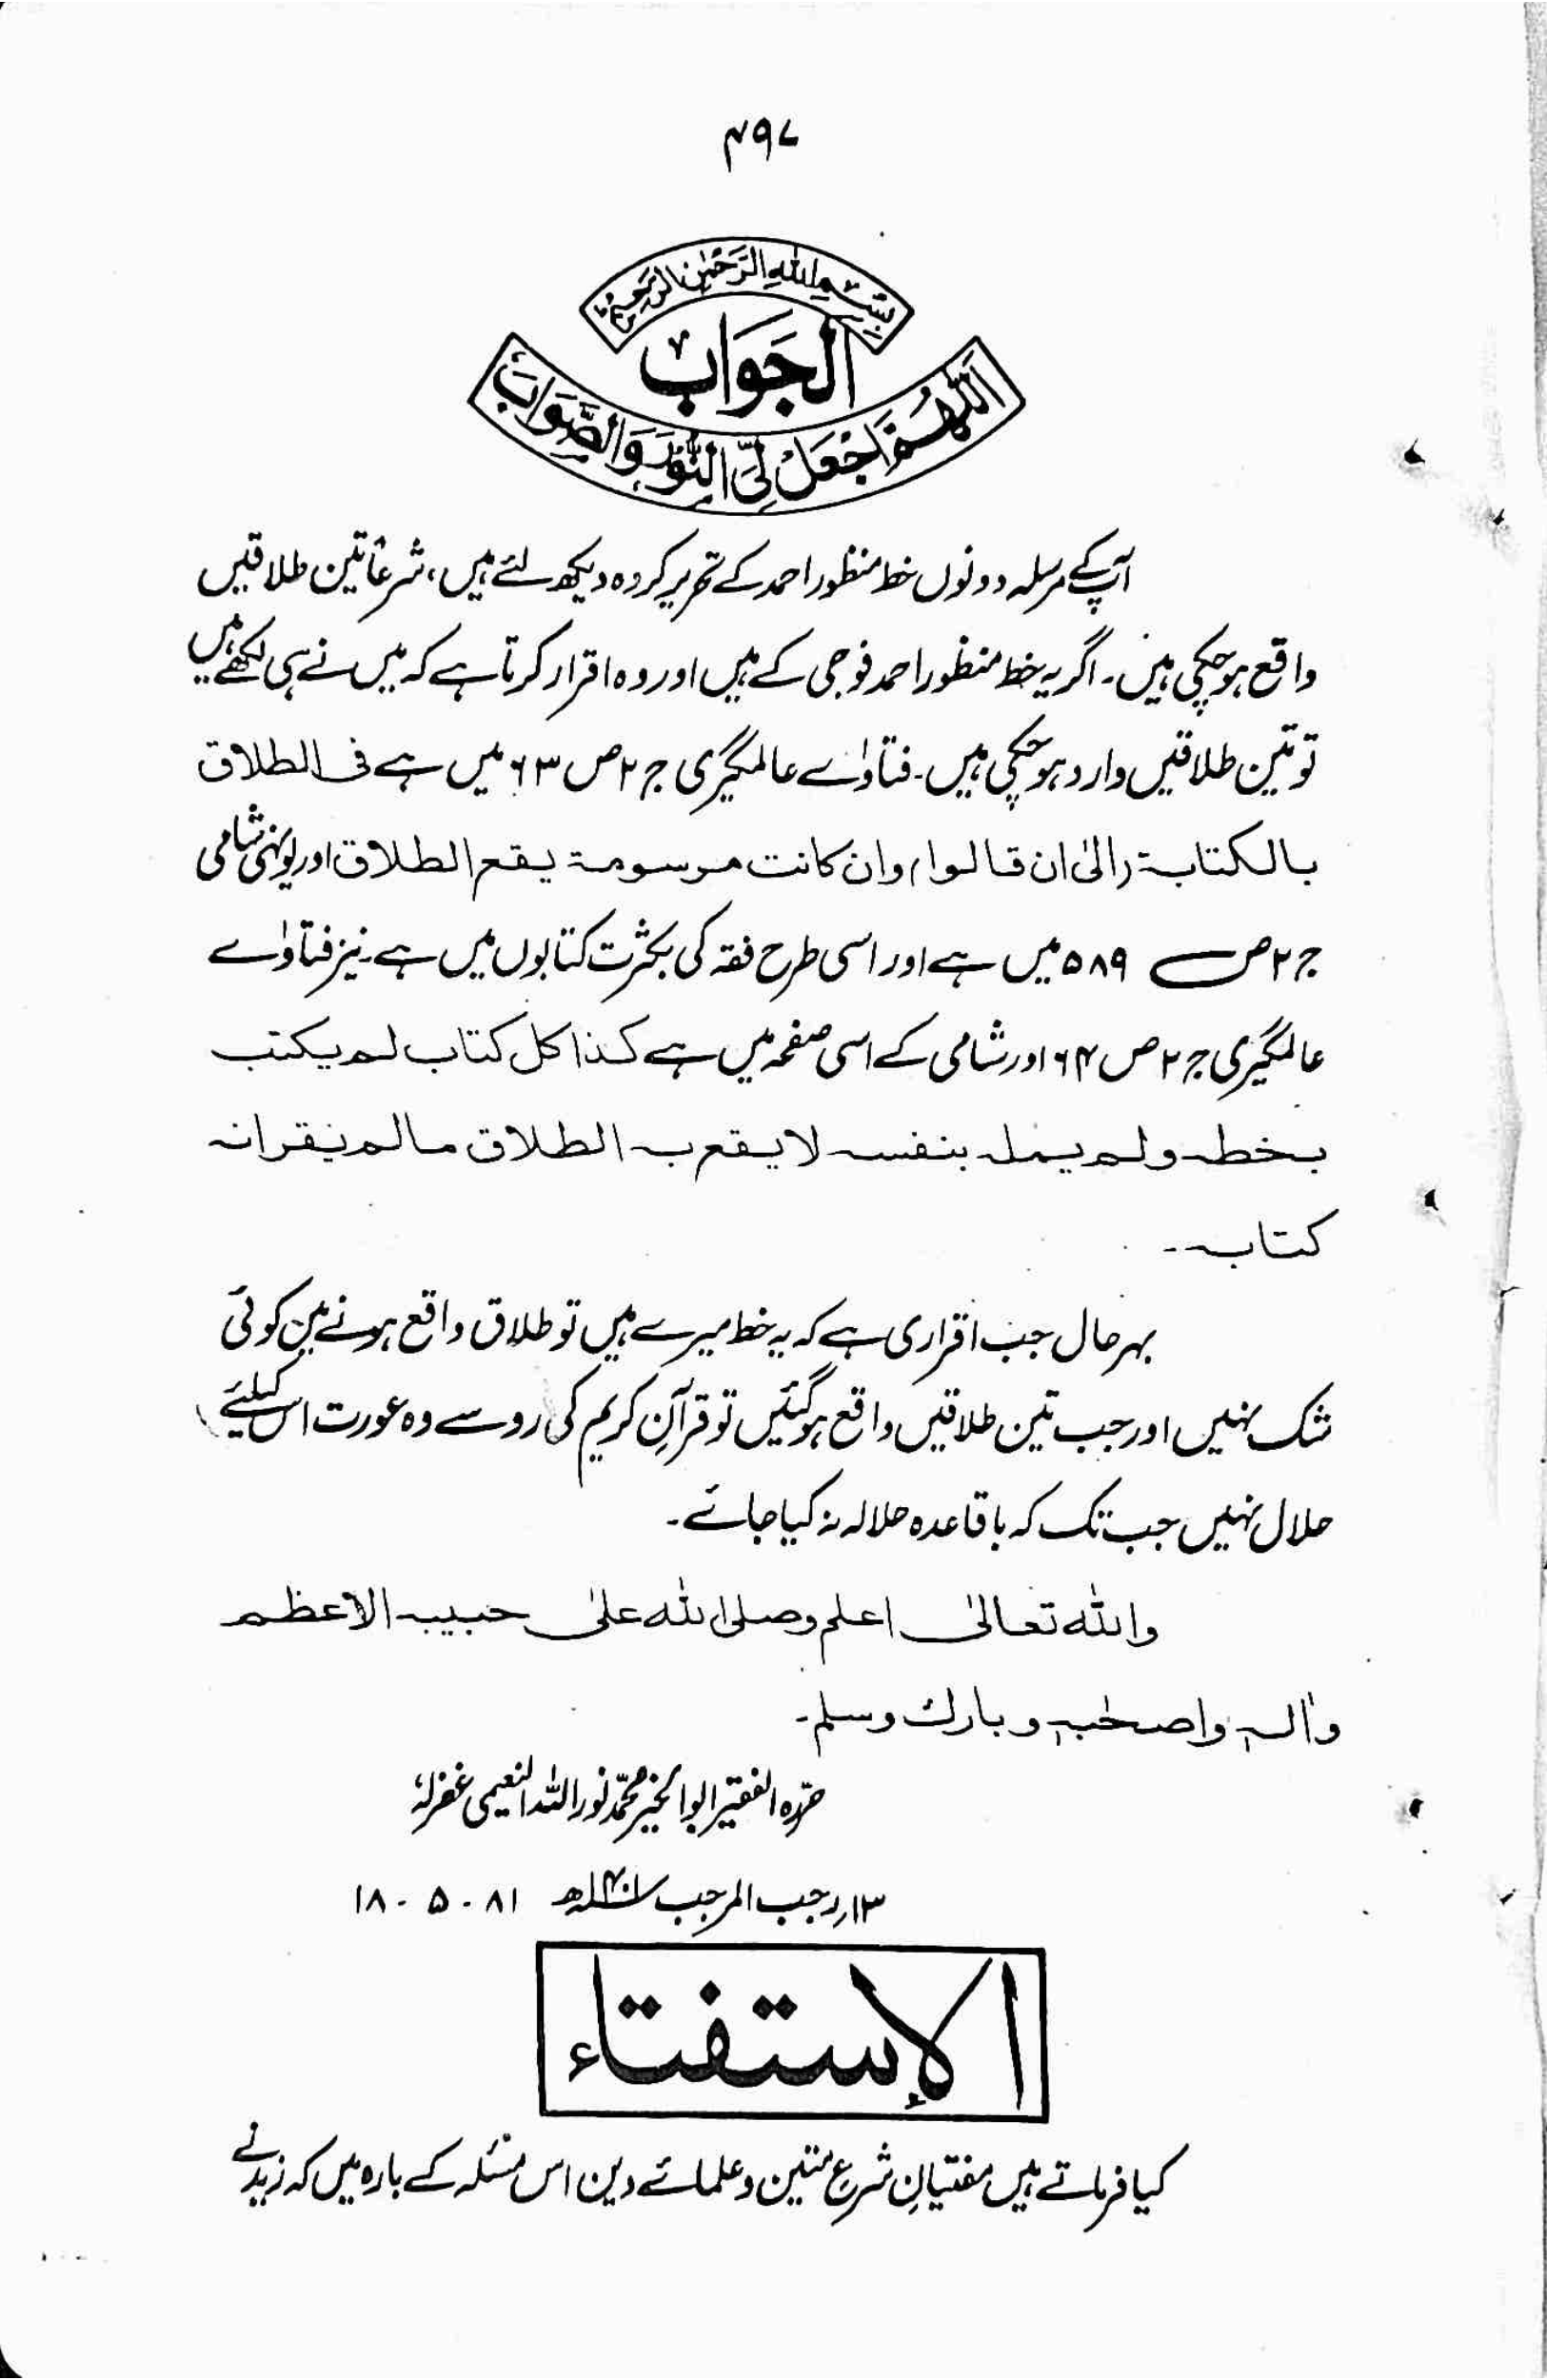 ۴۹۷
بِسْمِ اللهِ الرَّحْمٰنِ الرَّحِيْمِ
الجَوَاب
اَللّٰهُمَّ اجْعَلْ لِّيَ النُّوْرَ وَالصَّوَابَ
آپکے مرسلہ دونوں خط منظور احمد کے تحریر کردہ دیکھ لئے ہیں، شرعًا تین طلاقیں
واقع ہوچکی ہیں۔ اگر یہ خط منظور احمد فوجی کے ہیں اور وہ اقرار کرتا ہے کہ میں نے ہی لکھے ہیں
تو تین طلاقیں وارد ہوچکی ہیں۔ فتاوٰے عالمگیری ج ۲ ص ۶۳ میں ہے فی الطلاق
بالکتابۃ (الیٰ ان قالوا) وان کانت مرسومۃ یقع الطلاق اور یونہی شامی
ج ۲ ص ۵۸۹ میں ہے اور اسی طرح فقہ کی بکثرت کتابوں میں ہے۔ نیز فتاوٰے
عالمگیری ج ۲ ص ۶۴ اور شامی کے اسی صفحہ میں ہے کذا کل کتاب لم یکتب
بخطہ ولم یملہ بنفسہ لا یقع بہ الطلاق مالم یقر انہ
کتابہ۔
بہرحال جب اقراری ہے کہ یہ خط میرے ہیں تو طلاق واقع ہونے میں کوئی
شک نہیں اور جب تین طلاقیں واقع ہوگئیں تو قرآنِ کریم کی رو سے وہ عورت اس کیلئے
حلال نہیں جب تک کہ باقاعدہ حلالہ نہ کیا جائے۔
واللہ تعالیٰ اعلم وصلی اللہ علیٰ حبیبہ الاعظم
واٰلہٖ واصحٰبہٖ وبارك وسلم۔
حرّرہ الفقیر ابوالخیر محمّد نور اللہ النعیمی غفرلہٗ
۱۳؍رجب المرجب ۱۴۰۱ھ ۸۱ - ۵ - ۱۸
الإستفتاء
کیا فرماتے ہیں مفتیانِ شرعِ متین وعلمائے دین اس مسئلہ کے بارہ میں کہ زید نے